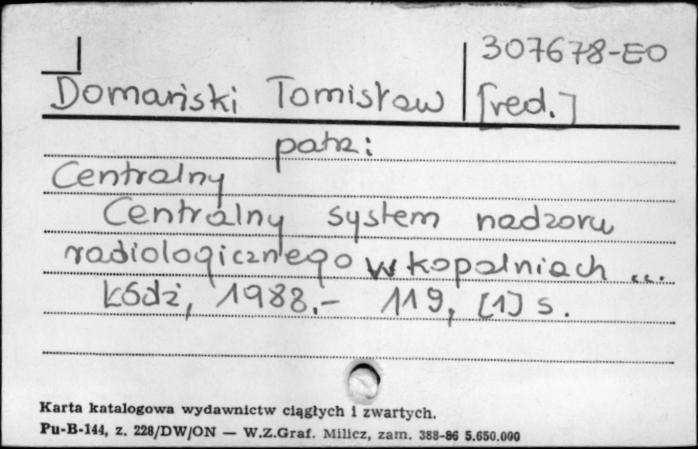 307678-EO
Domański Tomisław [red.]
patrz:
Centralny
Centralny system nadzoru
radiologicznego w kopalniach ...
Łódź, 1988.- 119, [1] s.
Karta katalogowa wydawnictw ciągłych i zwartych.
Pu-B-144, z. 228/DW/ON — W.Z.Graf. Milicz, zam. 388-86 5.650.000